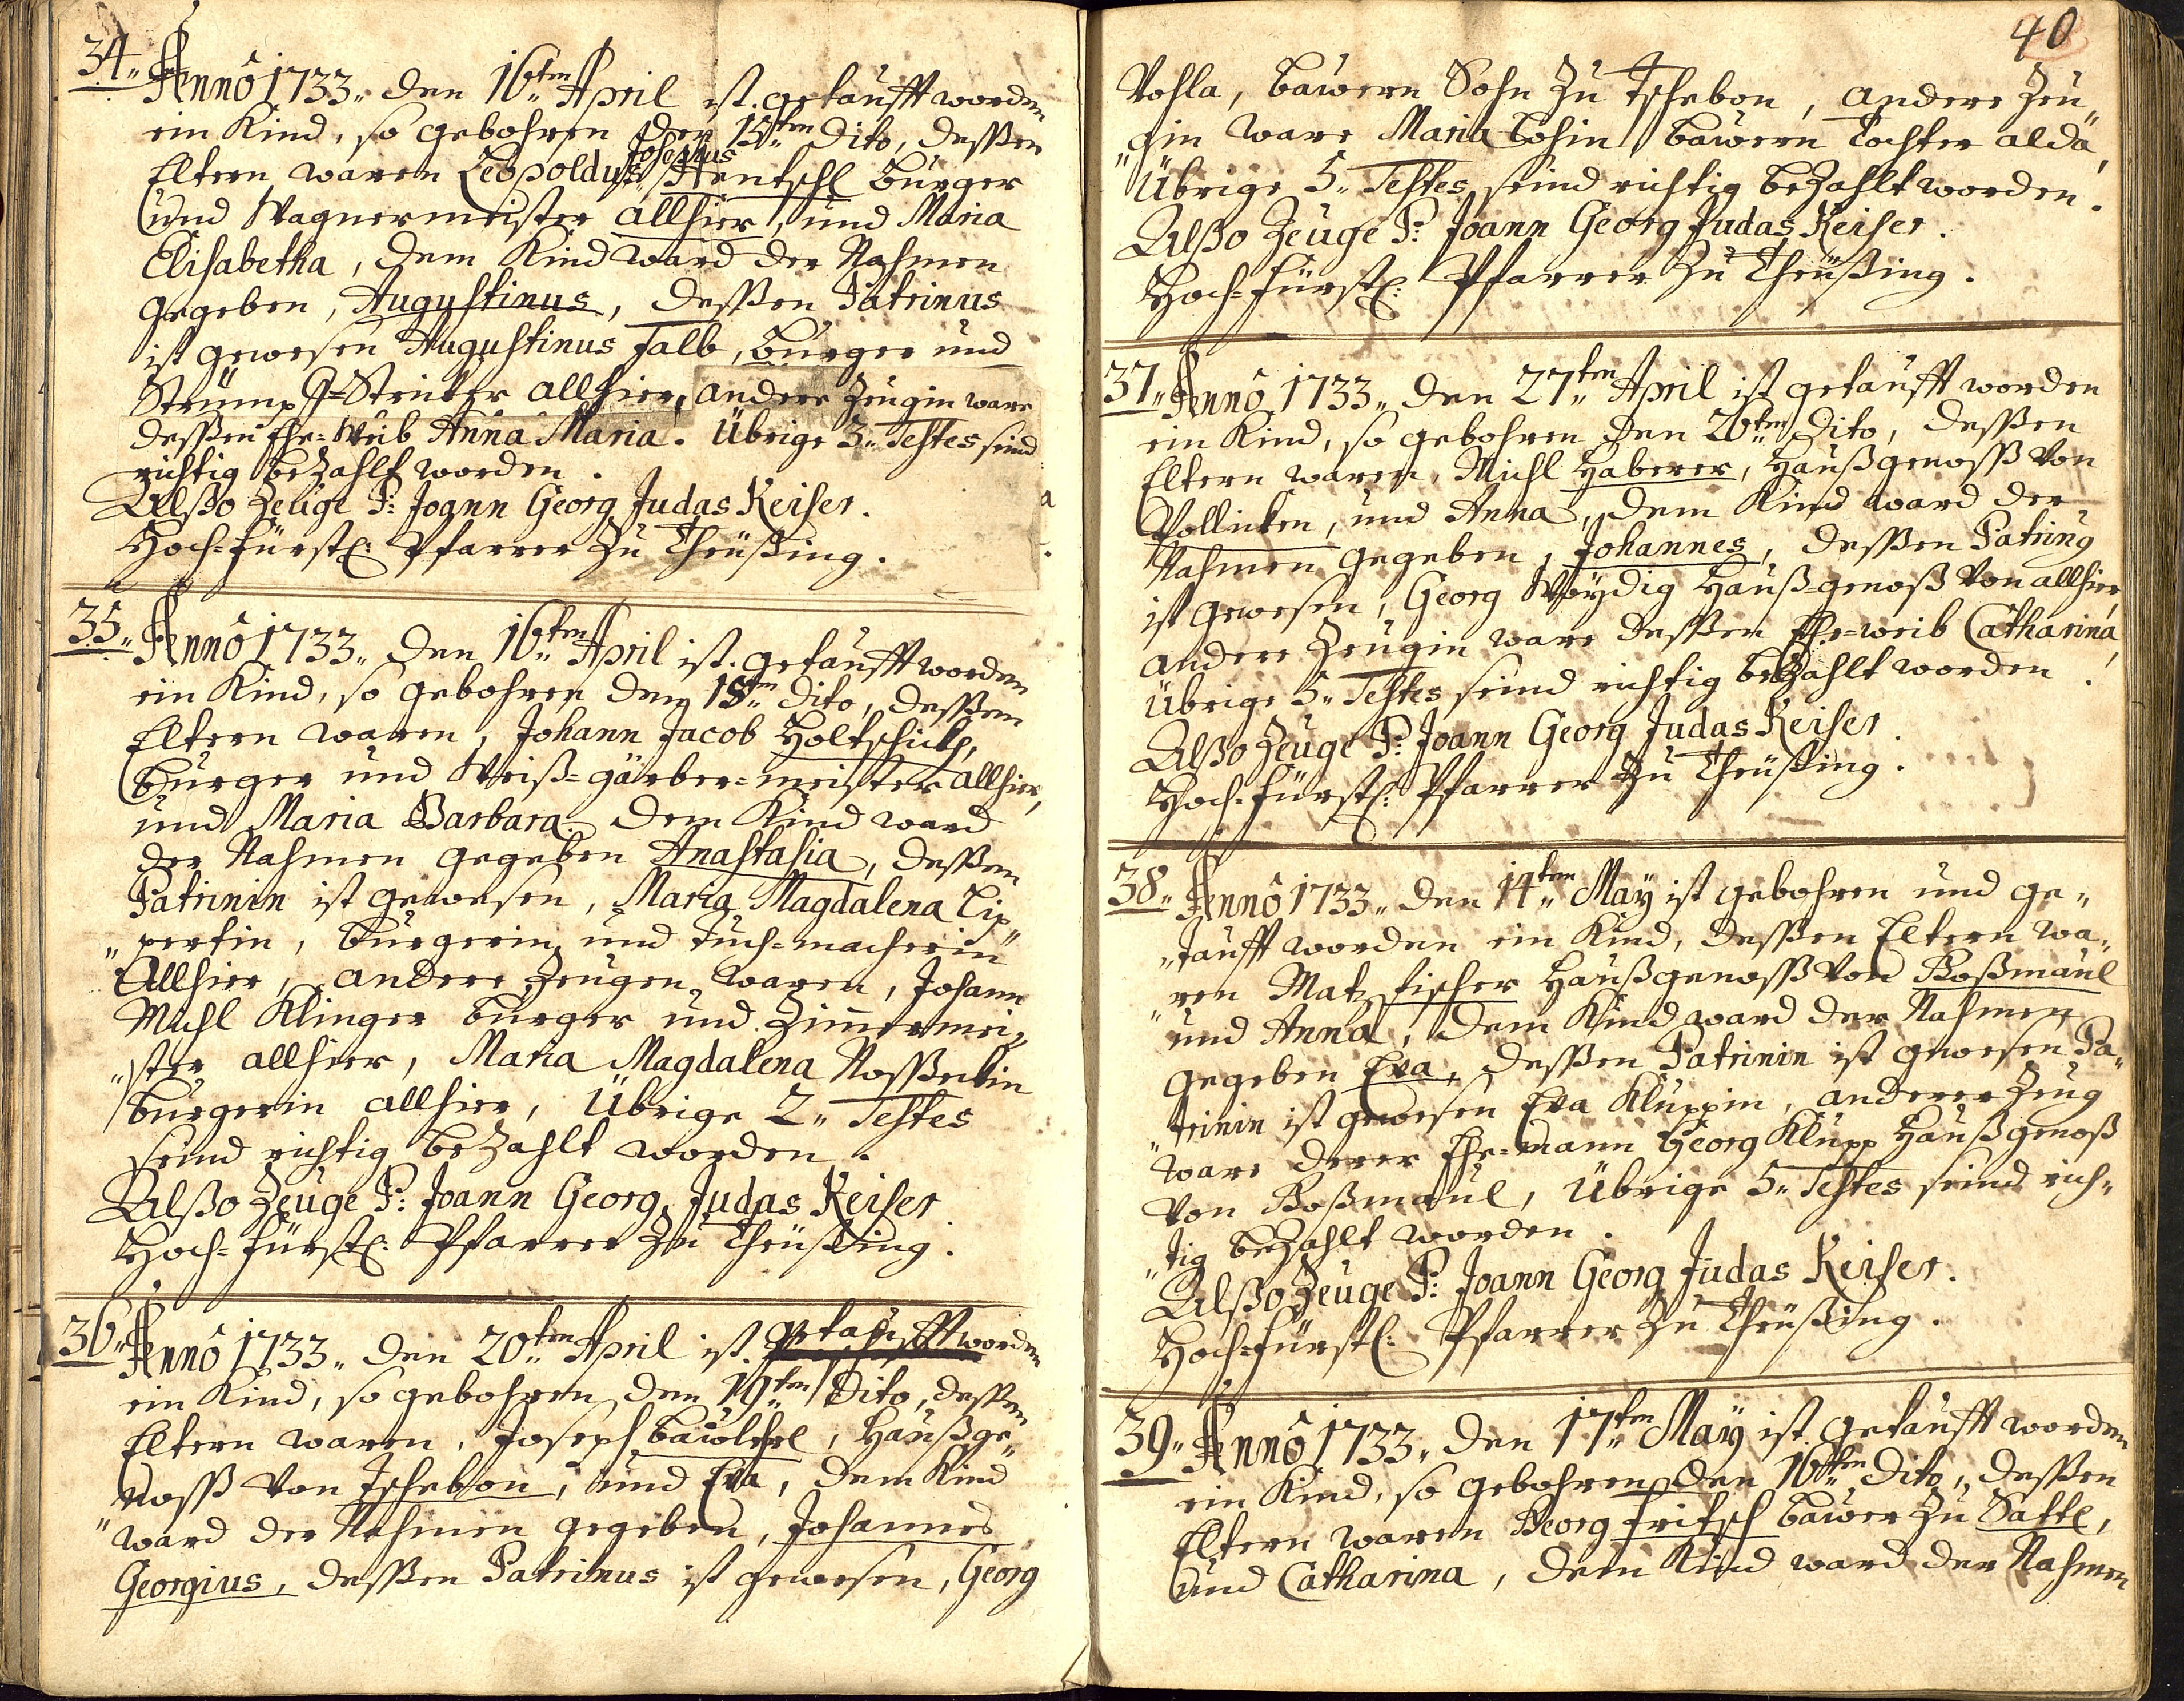 34„ Anno 1733„ den 16„ten April ist getaufft worden
ein Kind, so gebohren den 15„ten Dito, deßen
Josephus
Eltern waren Leopoldus Hentschl burger
und Wagnermeister allhier, und Maria
Elisabetha, dem Kind ward der Nahmen
gegeben, Augustinus, deßen Patrinus
ist gewesen Augustinus Falb, burger und
Strümpff-Stricker allhier, andere Zeugin ware
deßen Ehe-Weib Anna Maria. Übrige 3„ Testes seind
richtig bezahlt worden.
Alßo Zeuge P: Joann Georg Judas Keiser.
Hoch-fürstl: Pfarrer zu Theüßing.
35„ Anno 1733„ den 16„ten April ist getaufft worden
ein Kind, so gebohren den 15„ten Dito, deßen
Eltern waren, Johann Jacob Holtschickh,
burger und Weiß-gärber-meister allhier,
und Maria Barbara. dem Kind ward
der Nahmen gegeben Anastasia, deßen
Patrinin ist gewesen, Maria Magdalena Lip„
„pertin, burgerin und Tuch-macherin
Allhier, andere Zeugen waren, Johann
Michl Klinger burger und Zimmermei„
„ster allhier, Maria Magdalena
burgerin allhier, Übrige 2„ Testes
seind richtig bezahlt worden.
Alßo Zeuge P: Joann Georg Judas Keiser
Hoch-fürstl: Pfarrer zu Theüßing.
36„ Anno 1733„ den 20„ten April ist getaufft worden
ein Kind, so gebohren den 19„ten Dito, deßen
Eltern waren, Joseph , Haußge„
„noß von Tschebon, und Eva, dem Kind
ward der Nahmen gegeben, Johannes
Georgius, deßen Patrinus ist gewesen, Georg
40
Vohla, bawern Sohn zu Tschebon, andere Zeu„
„gin ware Maria bawern Tochter alda,
Übrige 5„ Testes seind richtig bezahlt worden.
Alßo Zeuge P: Joann Georg Judas Keiser.
Hoch-fürstl: Pfarrer zu Theüßing.
37„ Anno 1733„ den 27„ten April ist getaufft worden
ein Kind, so gebohren den 26„ten Dito, deßen
Eltern waren, Michl Haberer, Haußgenoß von
Pollicken, und Anna, dem Kind ward der
Nahmen gegeben, Johannes, deßen Patrinus
ist gewesen, Georg Woydig Hauß-genoß von allhier,
andere Zeugin ware deßen Ehe-weib Catharina,
Übrige 5„ Testes seind richtig bezahlt worden.
Alßo Zeuge P: Joann Georg Judas Keiser.
Hoch-fürstl: Pfarrer zu Theüßing.
38„ Anno 1733„ den 14„ten May ist gebohren und ge„
„taufft worden ein Kind, deßen Eltern wa„
„ren Matz fischer Haußgenoß von Boßmaul
und Anna, dem Kind ward der Nahmen
gegeben Eva, deßen Patrinin ist gewesen Pa„
„trinin ist gewesen Eva Kluppin, anderer Zeug
ware derer Ehe-mann Georg Klupp Haußgenoß
von Boßmaul, Übrige 5„ Testes seind rich„
„tig bezahlt worden.
Alßo Zeuge P: Joann Georg Judas Keiser.
Hoch-fürstl: Pfarrer zu Theüßing.
39„ Anno 1733„ den 17„ten May ist getaufft worden
ein Kind, so gebohren den 16„ten Dito, deßen
Eltern waren Georg fritsch bawer zu Sattl,
und Catharina, dem Kind ward der Nahmen